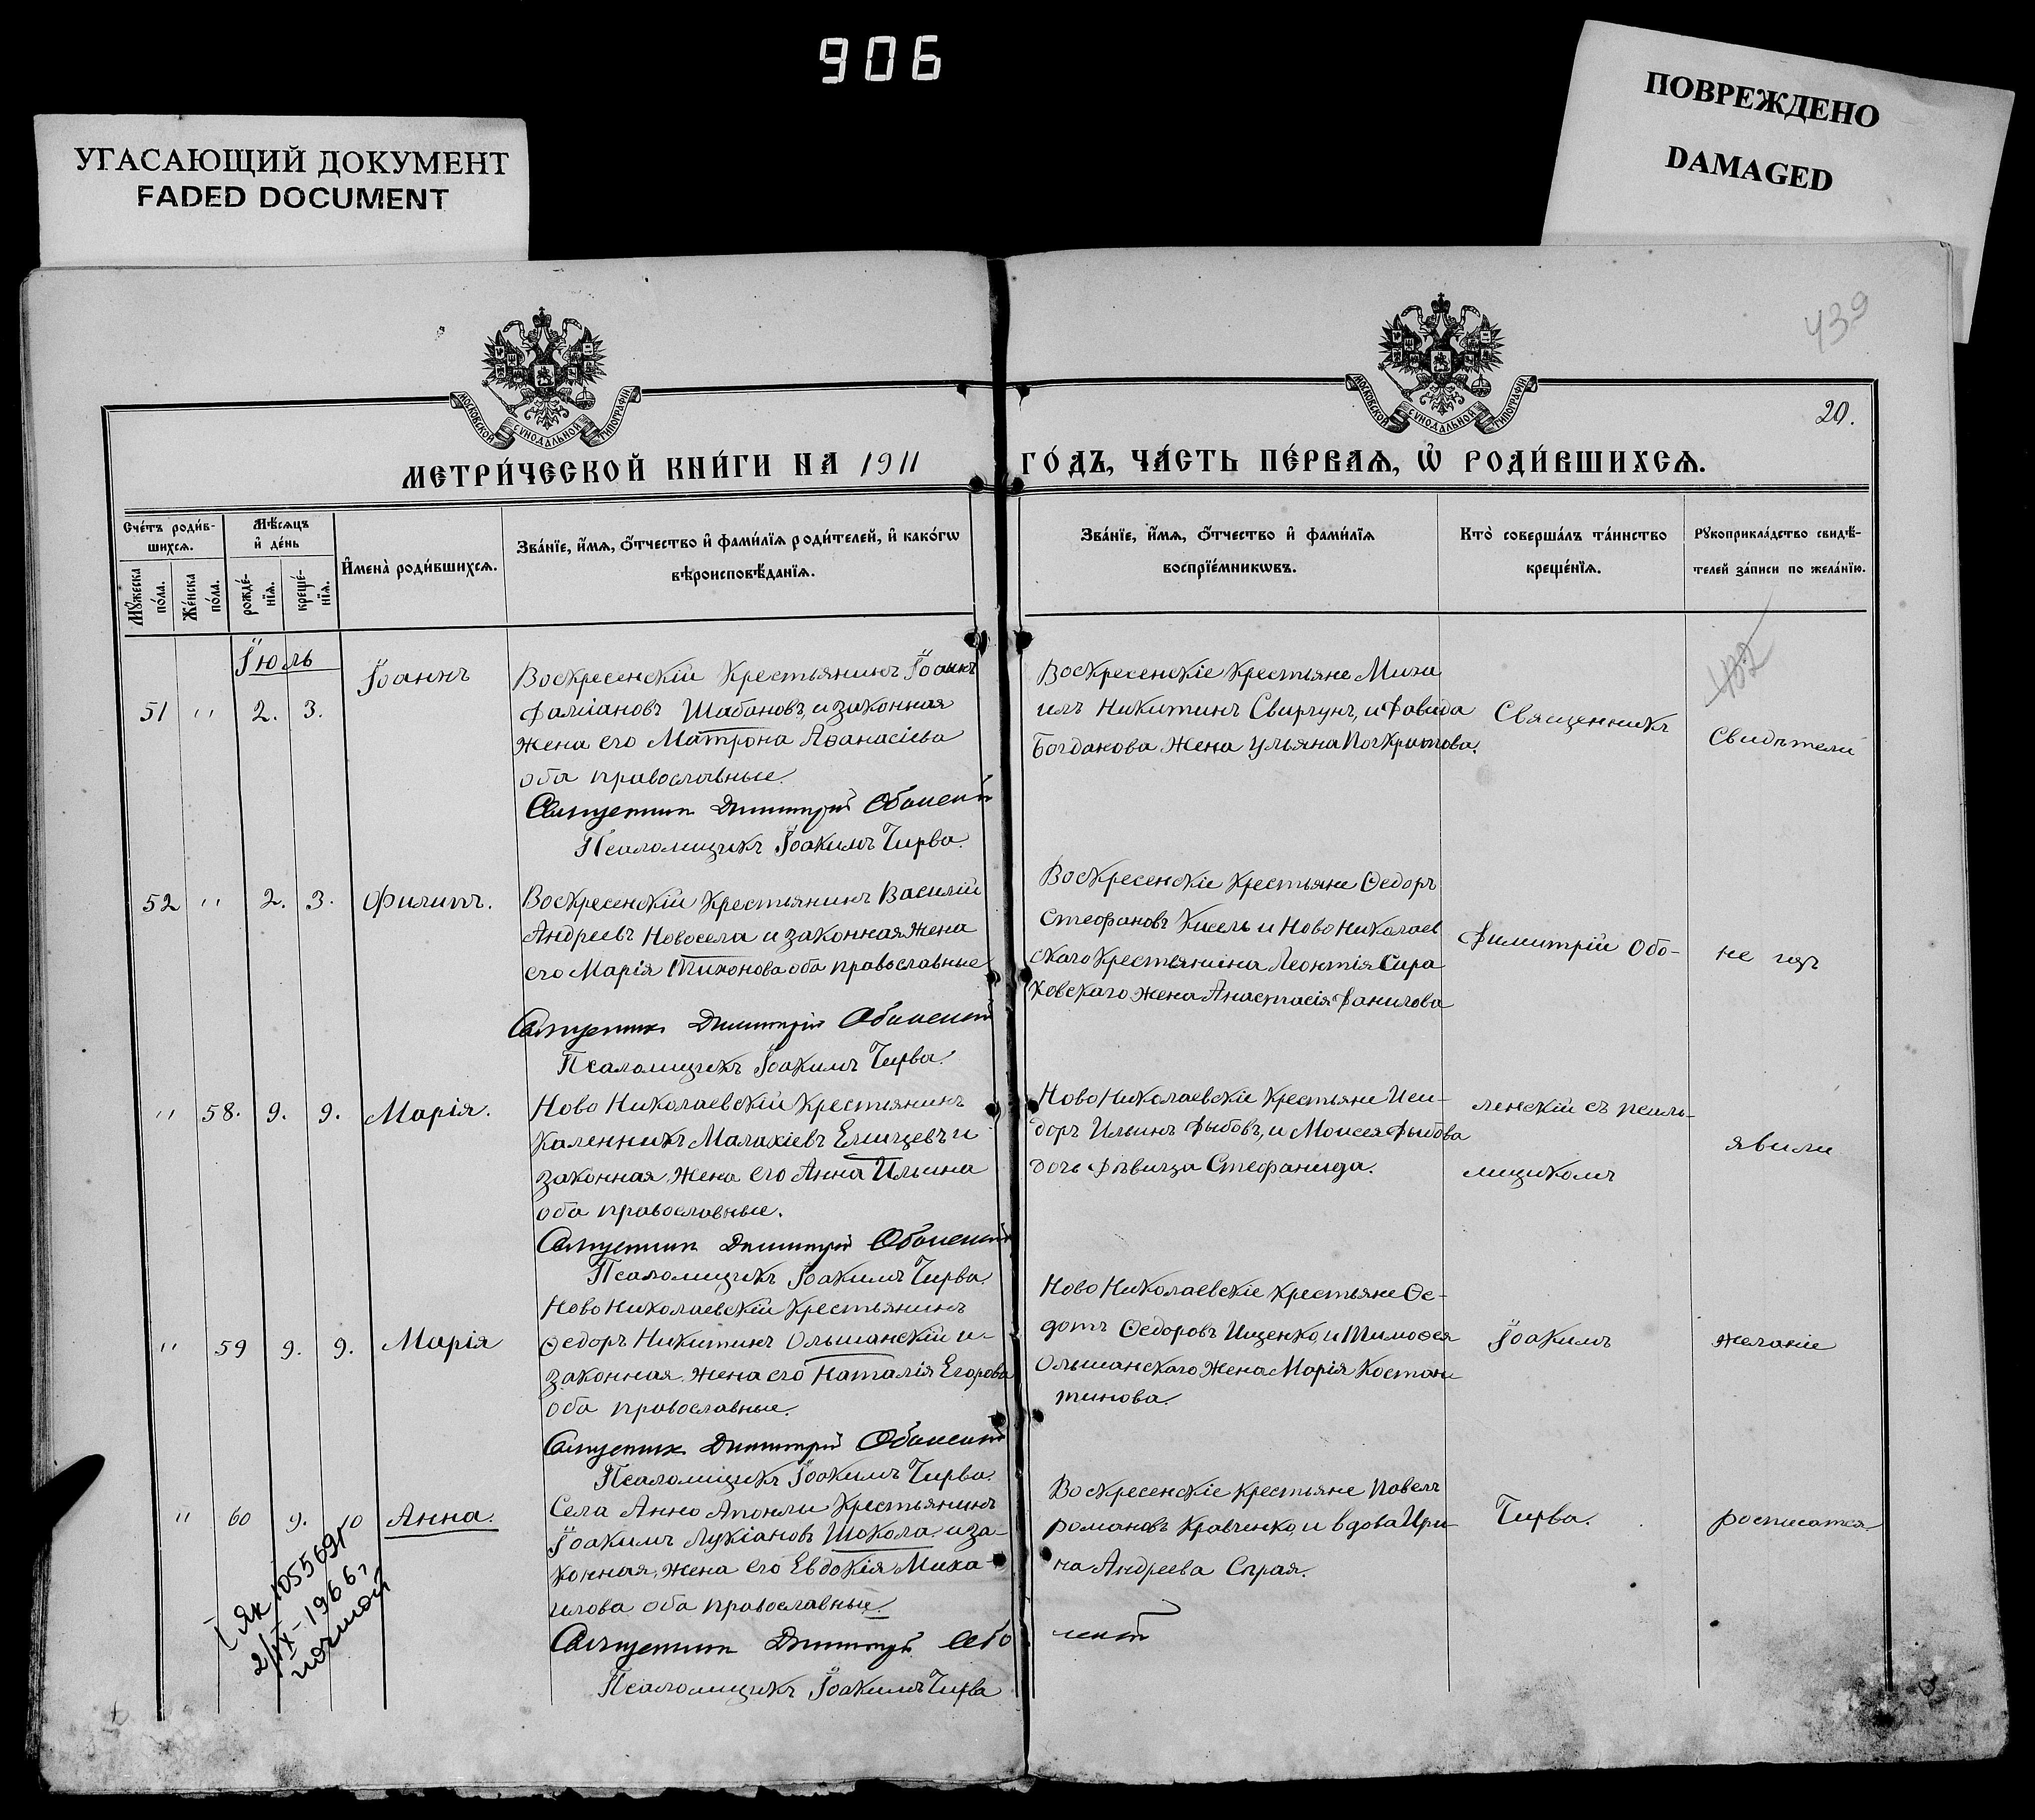 906
УГАСАЮЩИЙ ДОКУМЕНТ
FADED DOCUMENT
ПОВРЕЖДЕНО
DAMAGED
439
МОСКОВСКОЙ СУНОДАЛЬНОЙ ТИПОГРАФІИ
МОСКОВСКОЙ СУНОДАЛЬНОЙ ТИПОГРАФІИ
20.
МЕТРИ́ЧЕСКОЙ КНИ́ГИ НА 1911 ГО́ДЪ, ЧА́СТЬ ПЕ́РВАѦ, Ѡ҆ РОДИ́ВШИХСѦ.
Сче́тъ роди́в-
шихсѧ.
Мꙋ́жеска по́ла.
Же́нска по́ла.
Мѣ́сѧцъ и҆ де́нь
рожде́-нїѧ.
креще́-нїѧ.
И҆мена̀ роди́вшихсѧ.
Зва́нїе, и҆́мѧ, ѻ҆́тчество и҆ фами́лїѧ роди́телей, и҆ како́гѡ
вѣроисповѣ́данїѧ.
Зва́нїе, и҆́мѧ, ѻ҆́тчество и҆ фами́лїѧ
воспрїе́мникѡвъ.
Кто̀ соверша́лъ та́инство
креще́нїѧ.
Рꙋкоприкла́дство свидѣ́-
телей за́писи по жела́нїю.
Іюль
51 " 2. 3.
Іоаннъ
Воскресенскій Крестьянинъ Іоаннъ
Даміановъ Шабановъ, и законная
жена его Матрона Аѳанасіева
оба православные.
Священник Димитрий Оболенский
Псаломщикъ Іоакимъ Чирва.
Воскресенскіе Крестьяне Миха
илъ Никитинъ Свиргунъ, и Давида
Богданова жена Ульяна
Священникъ
102
Свидѣтели
52 " 2. 3.
Филипъ.
Воскресенскій Крестьянинъ Василій
Андреевъ Новосела и законная жена
его Марія Тихонова оба православные
Священник Димитрий Оболенский
Псаломщикъ Іоакимъ Чирва.
Воскресенскіе Крестьяне Ѳедоръ
Стефановъ Кисель и Ново Николаев
скаго Крестьянина Леонтія Сира
ковскаго жена Анастасія Данилова
Димитрій Обо-
не изъ
" 58. 9. 9.
Марія.
Ново Николаевскій Крестьянинъ
Каленникъ Малахіевъ Емицевъ и
законная жена его Анна Ильина
оба православные.
Священник Димитрий Оболенский
Псаломщикъ Іоакимъ Чирва
Ново Николаевскіе Крестьяне Иси-
доръ Ильинъ Дыбовъ, и Моисея Дыбова
дочь дѣвица Стефанида.
ленскій съ псало-
мщикомъ
явили
" 59 9. 9.
Марія
Ново Николаевскій Крестьянинъ
Ѳедоръ Никитинъ Ольшанскій и
законная жена его Наталія Егорова
оба православные.
Священник Димитрий Оболенский
Псаломщикъ Іоакимъ Чирва.
Ново Николаевскіе Крестьяне Ѳе-
дотъ Ѳедоровъ Ищенко и Тимоѳея
Ольшанскаго жена Марія Костан
тинова.
Іоакимъ
желаніе
" 60 9. 10
Анна.
Села Анно Крестьянинъ
Іоакимъ Лукіановъ Шокола и за-
конная жена его Евдокія Миха-
илова оба православные.
Священник Димитрий Оболенский
Псаломщикъ Іоакимъ Чирва
Воскресенскіе Крестьяне Павелъ
Романовъ Кравченко, и вдова Ири-
на Андреева Сѣрая.
Чирва.
росписатся.
I ЯК 1055691
2/IX-1966г
почтой